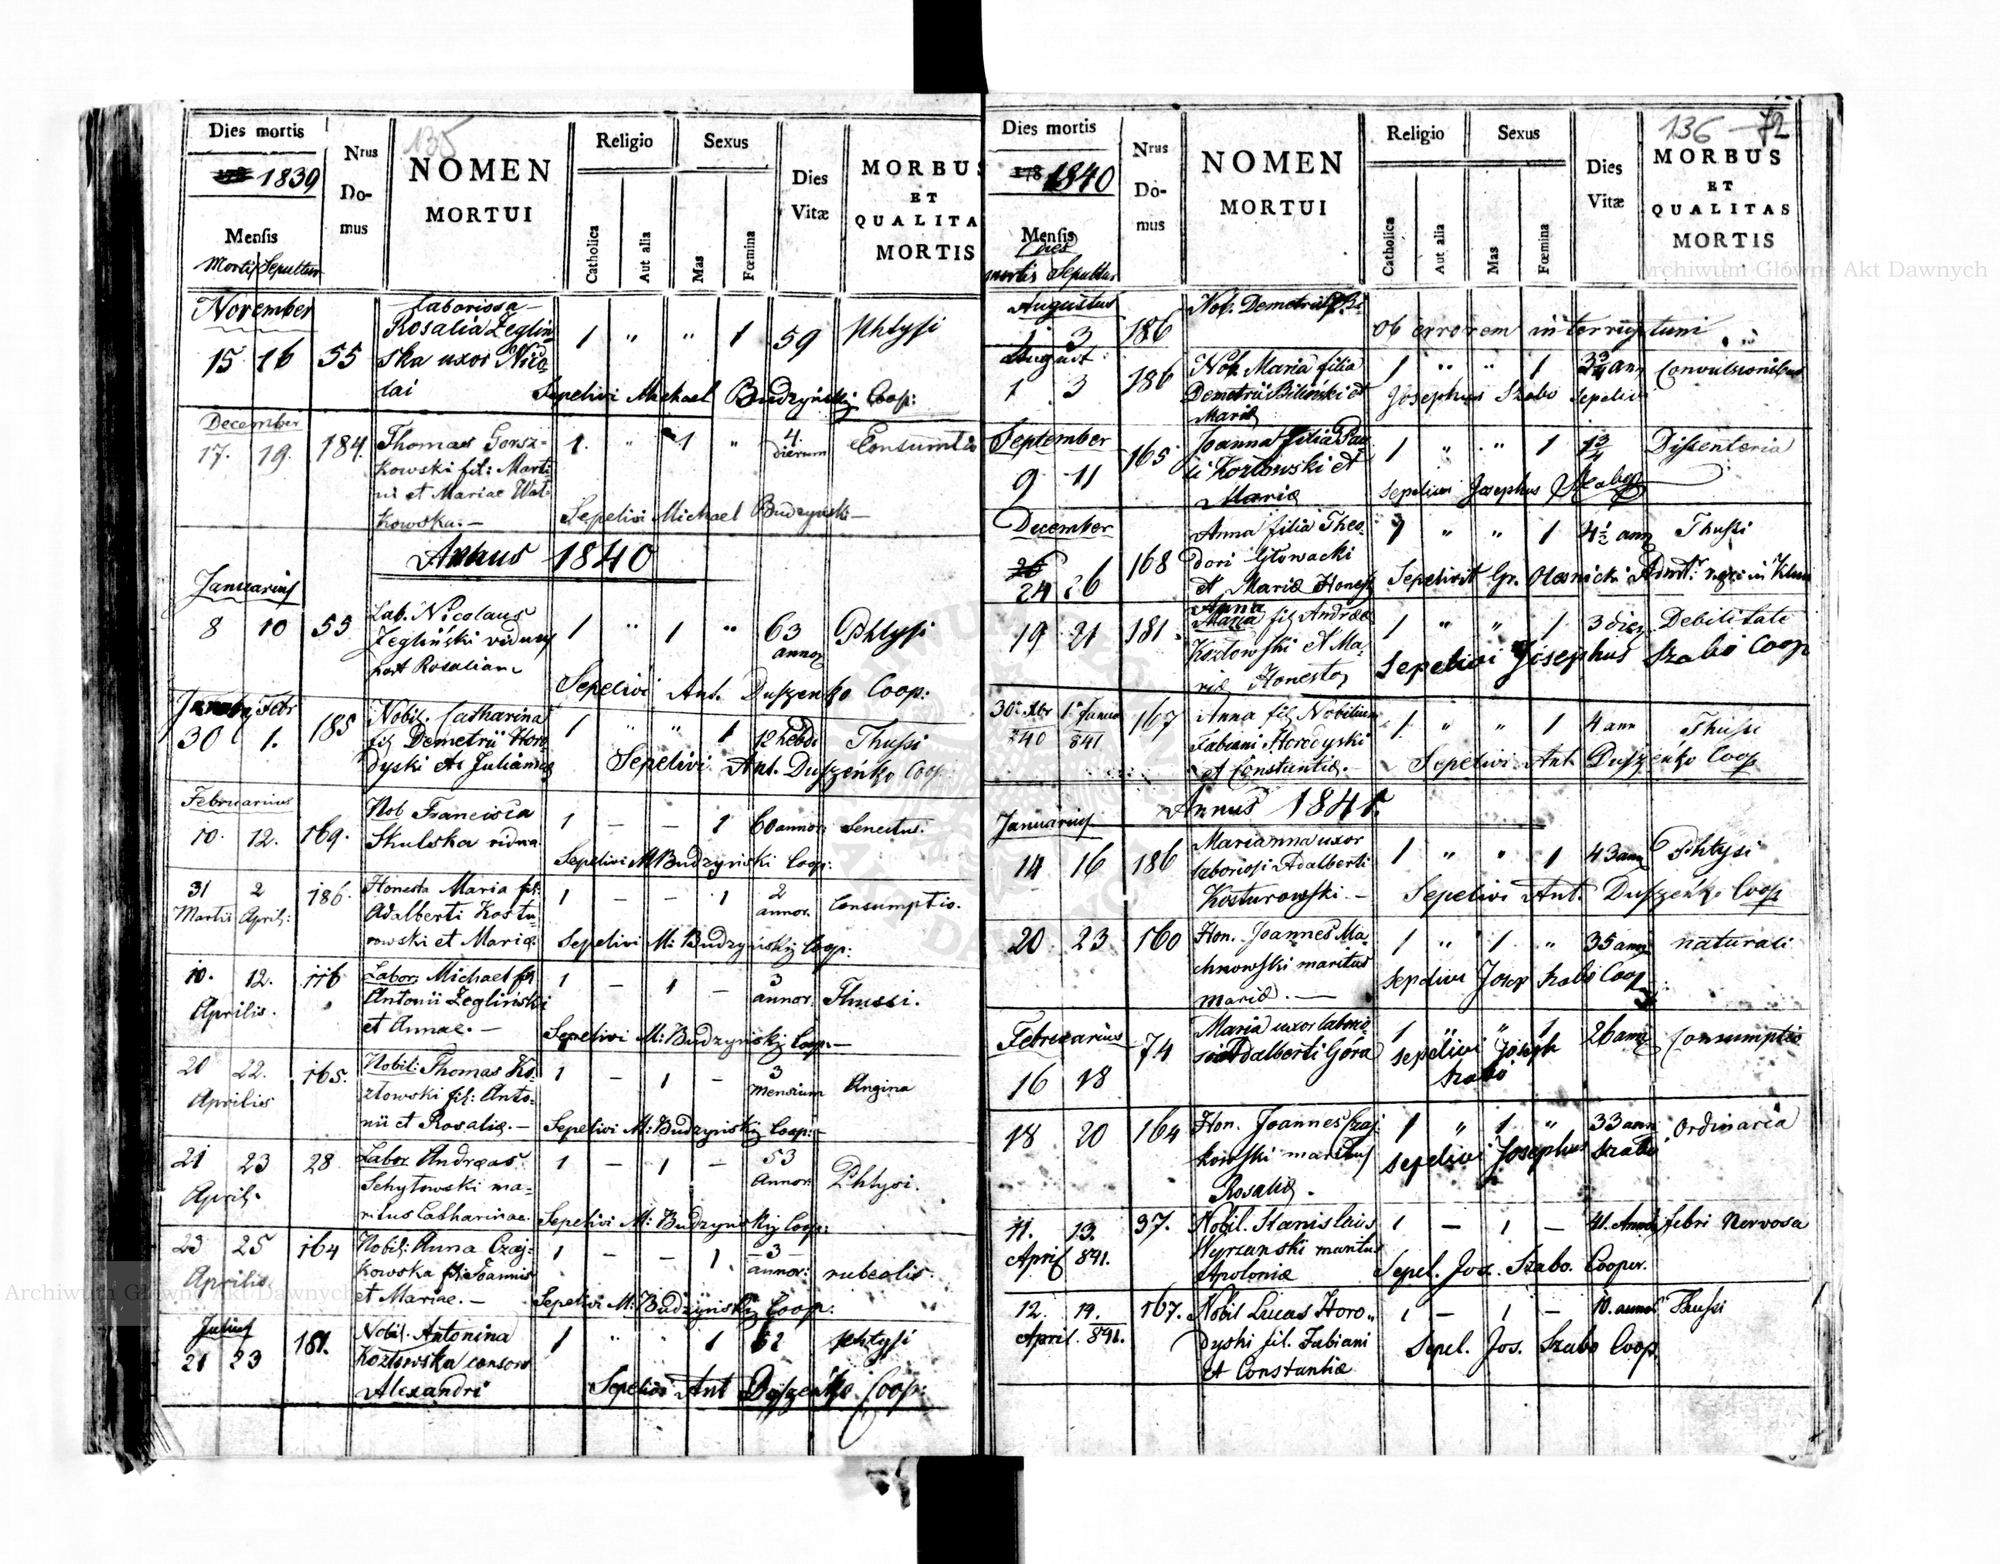 135
Dies mortis
1839
Mensis
Mortis Sepultur
Nrus
Do-
mus
NOMEN
MORTUI
Religio
Catholica
Aut alia
Sexus
Mas
Fœmina
Dies
Vitæ
MORBUS
ET
QUALITA
MORTIS
November
15 16 55
Laboriosa
Rosalia Zeglin-
ska uxor Nico-
lai
1 " " 1 59 Phtysi
Sepelivi Michael Budzyński Coop:
December
17. 19. 184.
Thomas Gorsz-
kowski fil: Marti
ni et Mariae Wat-
kowska. —
1. " 1 " 4. dierum Consumtio
Sepelivi Michael Budzyński —
Annus 1840
Januarius
8 10 55
Lab. Nicolaus
Zegliński viduus
post Rosaliam
1 " 1 " 63 annor Phtysi
Sepelivi Ant. Duszeńko Coop:
Febr
30 1. 185
Nobil. Catharina
fil Demetrii Horo
dyski et Julianna
1 " " 1 12 hebd Thussi
Sepelivi Ant. Duszeńko Coop.
Februarius
10. 12. 169.
Nob Francisca
Skulska vidua
1 — — 1 60 annor: Senectus.
Sepelivi M Budzyński Coop:
31 2 186.
Martii April:
Honesta Maria fil:
Adalberti Kostu
rowski et Mariæ.
1 — — 1 2 annor. Consumptio.
Sepelivi M: Budzyński Coop:
10. 12. 176
Aprilis.
Labor. Michael fil
Antonii Zegliński
et Annae. —
1 — 1 — 3 annor. Thussi.
Sepelivi M: Budzyński Coop. —
20 22. 165.
Aprilis
Nobil: Thomas Ko-
złowski fil: Anto-
nii et Rosaliæ. —
1 — 1 — 3 mensium Angina
Sepelivi M: Budzyński Coop: —
21 23 28
April.
Labor Andreas
Schytowski ma-
ritus Catharinae.
1 — 1 — 53 Annor. Phtysi.
Sepelivi M: Budzyński Coop:
23 25 164
Aprilis.
Nobil: Anna Czaj-
kowska fil: Joannis
et Mariae. —
1 — — 1 3 annor: rubeolis.
Sepelivi M: Budzyński Coop.
Julius
21 23 181.
Nobil. Antonina
Kozłowska consors
Alexandri
1 " " 1 62 phtysi
Sepelivi Ant Duszeńko Coop:
136 72
Dies mortis
178 1840
Mensis
Dies
mortis Sepultur
Nrus
Do-
mus
NOMEN
MORTUI
Religio
Catholica
Aut alia
Sexus
Mas
Fœmina
Dies
Vitæ
MORBUS
ET
QUALITAS
MORTIS
Augustus
1 3 186
Nob. Demetrius Bi-
ob errorem interruptum
August
1 3 186
Nob Maria filia
Demetrii Biliński et
Mariæ
1 " " 1 3 3/4 ann Convulsionibus
Josephus Szabo sepelivi
September
9 11 165
Joanna filia Pau
li Kozłowski et
Mariæ
1 " " 1 1 3/4 Dissenteria
Sepelivi Josephus Szabo
December
26
24 26 168
Anna filia Theo-
dori Głowacki
et Mariæ Honest
1 " " 1 4 1/2 ann Thussi
Sepelivit Gr. Olesnicki Admr.
19 21 181.
Anna
Maria fil Andreæ
Kozłowski et Ma-
riæ Honesto
1 " " 1 3 dies Debilitate
Sepelivi Josephus Szabo Coop
30 Xbr 1. Januar 167
840 841
Anna fil Nobilium
Fabiani Horodyski
et Constantiæ. —
1 " " 1 4 ann Thussi
Sepelivi Ant Duszeńko Coop
Annus 1841.
Januarius
14 16 186
Marianna uxor
laboriosi Adalberti
Kosturowski. —
1 " " 1 43 ann Phtysi
Sepelivi Ant. Duszeńko Coop
20 23 160
Hon. Joannes Ma-
chnowski maritus
mariæ. —
1 " 1 " 35 ann naturali
Sepelivi Josep Szabo Coop
Februarius
16 18 74
Maria uxor laborio-
si Adalberti Góra
1 " " 1 26 ann Consumptio
sepelivi Joseph
Szabo
18 20 164
Hon. Joannes Czaj
kowski maritus
Rosaliæ.
1 " 1 " 33 ann Ordinaria
sepelivi Josephus Szabo
11. 13. 37.
April 841.
Nobil. Stanislaus
Wyrzanski maritus
Apoloniæ
1 — 1 — 41. Annor febri Nervosa
Sepel. Jos. Szabo. Cooper.
12. 14. 167.
April. 841.
Nobil Lucas Horo-
dyski fil. Fabiani
et Constantiæ
1 — 1 — 10. annor Thussi
Sepel. Jos. Szabo Coop.
Archiwum Główne Akt Dawnych
Archiwum Główne Akt Dawnych